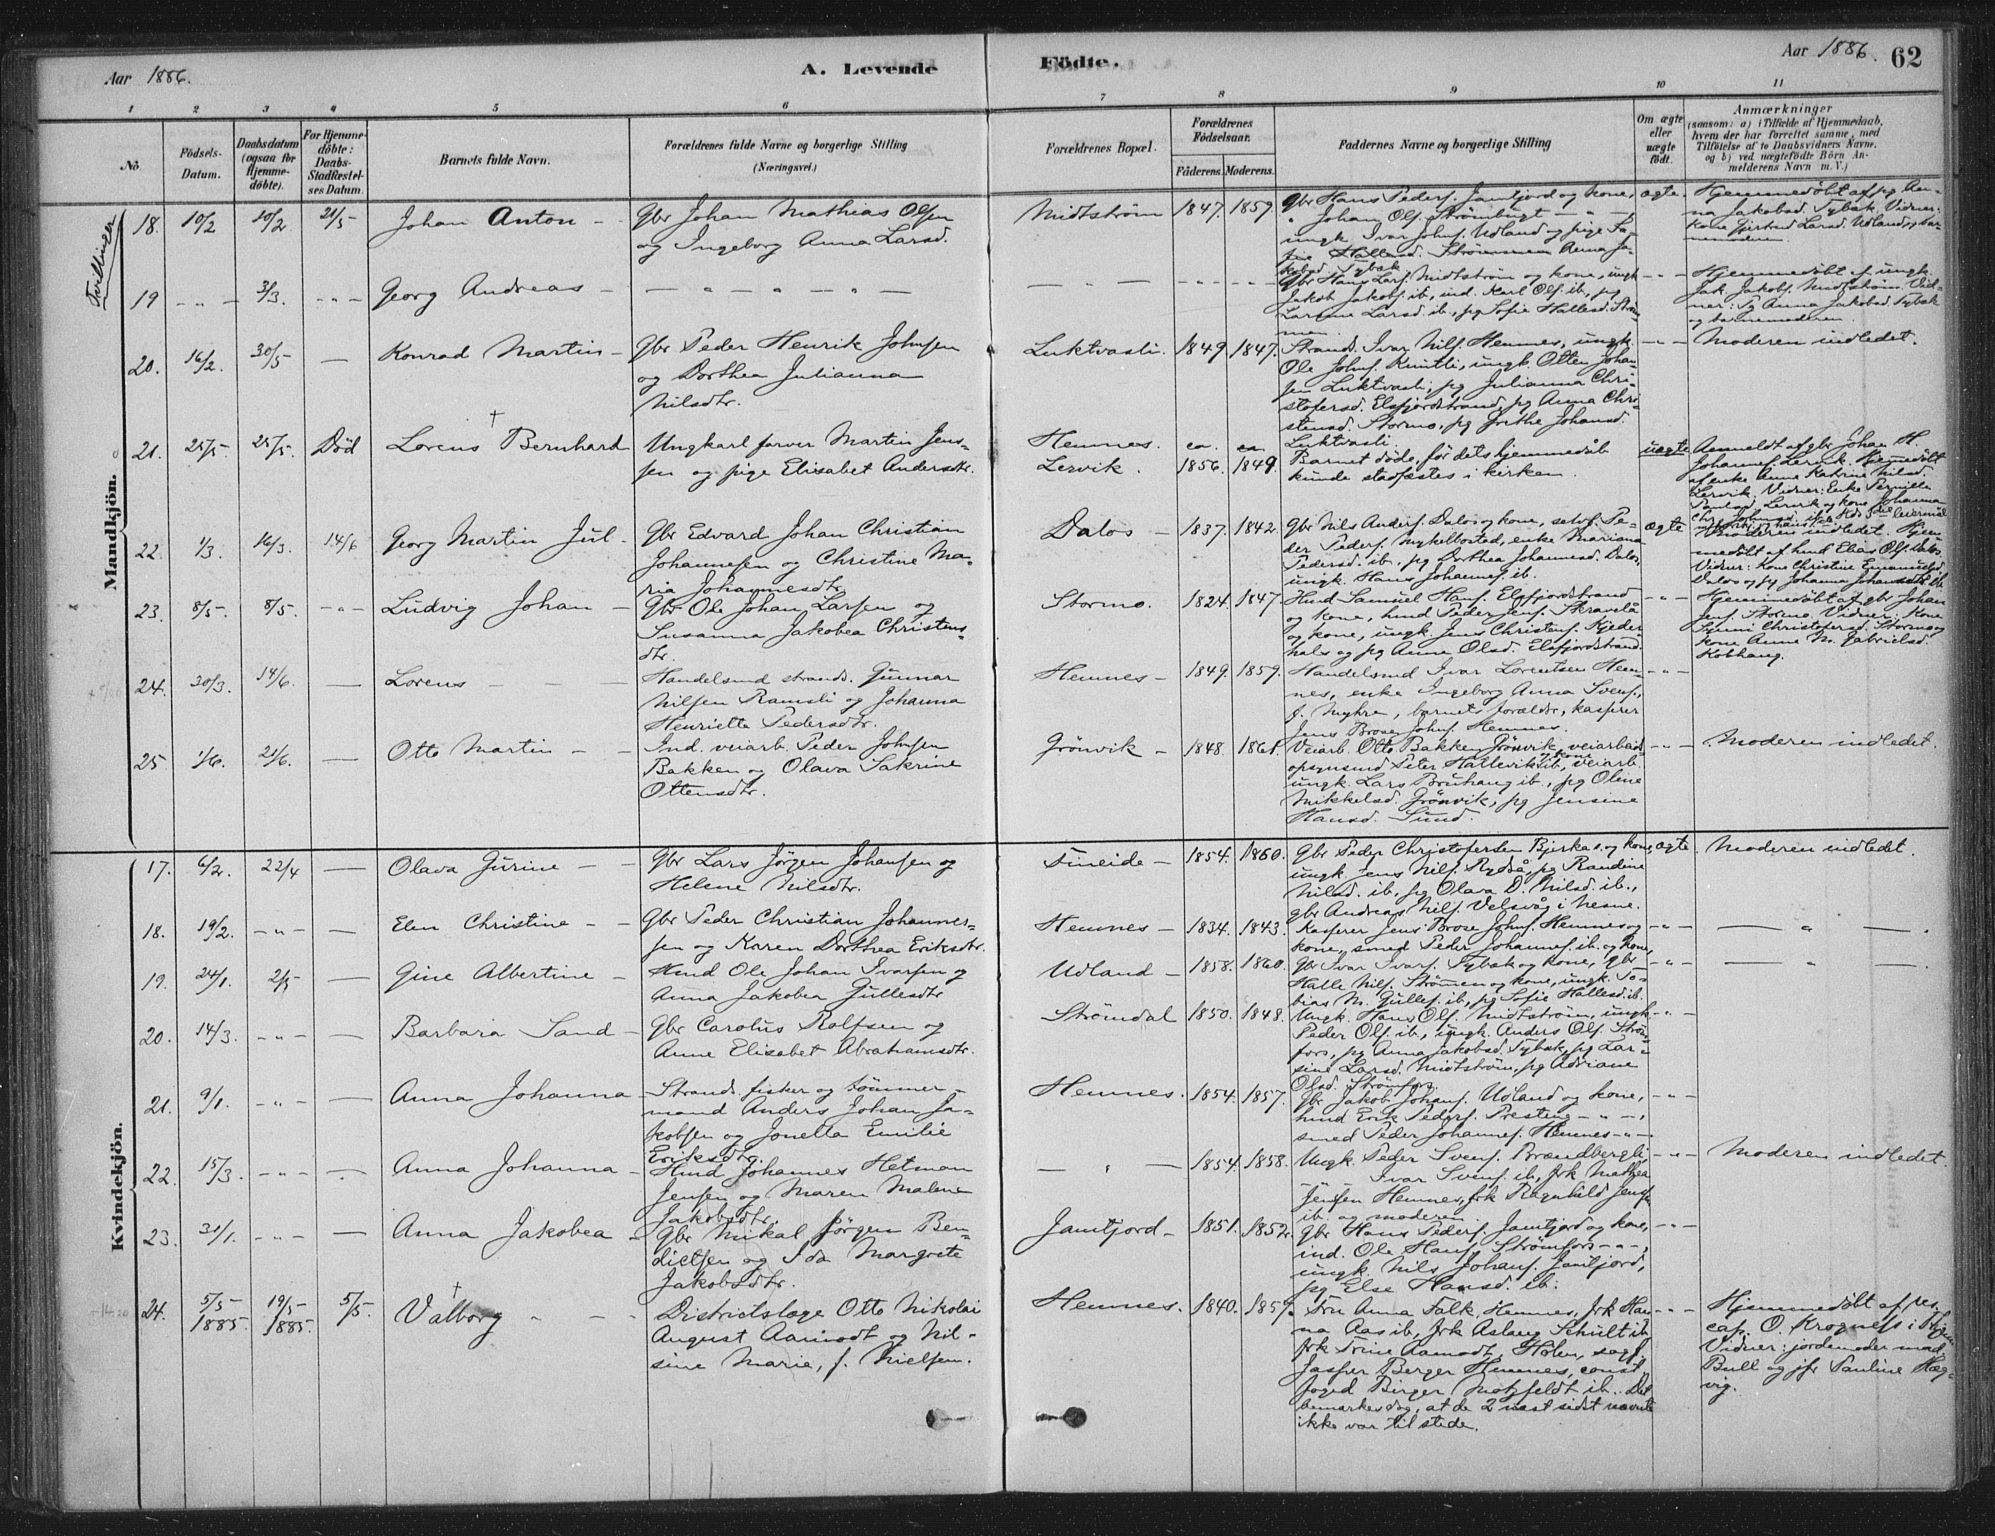 Aar 1886.
A. Levende
Födte.
Aar 1886.
62
1 2 3 4 5 6 7 8 9 10 11
No.
Födsels-
Datum.
Daabsdatum
(ogsaa for
Hjemme-
döbte).
For Hjemme-
döbte:
Daabs-
Stadfæstel-
ses Datum.
Barnets fulde Navn.
Forældrenes fulde Navne og borgerlige Stilling
(Næringsvei.)
Forældrenes Bopæl.
Forældrenes
Födselsaar.
Faderens. Moderens.
Faddernes Navne og borgerlige Stilling
Om ægte
eller
uægte
födt.
Anmærkninger
(saasom: a) i Tilfælde af Hjemmedaab,
hvem der har forrettet samme, med
Tilföielse af to Daabsvidners Navne,
og b) ved uægtefödte Börn An-
melderens Navn m. V.)
Mandkjön.
Tvillinger
18. 10/2 10/2 21/5 Johan Anton -
Gbr Johan Mathias Olsen
og Ingeborg Anna Larsd.
Midtstrøm 1847. 1859.
Gbr Hans Peders. Jamtjord og kone,
" Johan Ols. Strømbugt - " -,
ungk. Ivar Johns. Udland og pige So-
fie Hallesd. Strømmen Anna Ja-
kobsd. Tybæk
ægte.
Hjemmedøbt af pg An-
na Jakobsd. Tybæk. Vidner:
Kone Gjertrud Larsd. Udland, bar-
nemoderen.
19 - " - 3/3. - " - Georg Andreas -
Gbr Hans Lars. Midtstrøm og kone, ungk
Jakob Jakobs. ib, ind. Karl Ols. ib, pg
Larsine Larsd. ib., pg Sofie Hallesd. Strøm-
men.
- " -
Hjemmedøbt af ungk.
Jak. Jakobs. Midtstrøm. Vid-
ner: Pg Anna Jakobsd. Tybæk
og barnemoderen.
20. 16/2. 30/5 - Konrad Martin -
Gbr Peder Henrik Johnsen
og Dorthea Julianna
Nilsdtr.
Luktvasli. 1849 1847.
Strands. Ivar Nils. Hemnes, ungk.
Ole Johns. Kuntli, ungk. Otten Johan-
sen Luktvasli, pg Julianna Chri-
stofersd. Elsfjordstrand, pg Anna Chri-
stensd. Stormo, pg Grethe Johansd.
Luktvasli.
- " -
Moderen indledet.
21. 25/5- 25/5. Död Lorens Bernhard †
Ungkarl farver Martin Jens-
sen og pige Elisabet Andersdtr.
Hemnes.
Lervik.
ca. 1856. ca. 1849.
Barnet døde, før dets hjemmedåb
kunde stadfæstes i kirken.
uægte
Anmeldt af gbr Johan H.
Johannes. Lervik. Hjemmedöbt
af enke Anne Katrine Nilsd.
Lervik. Vidner: Enke Pernille
Paulsd. Lervik og kone Johanna
22. 1/3. 16/3. 14/6 Georg Martin Jul -
Gbr Edvard Johan Christian
Johannesen og Christine Ma-
ria Johannesdtr.
Dalos - 1837. 1842.
Gbr Nils Anders. Dalos og kone, selvf. Pe-
der Peders. Mykelbostad, enke Mariana
Pedersd. ib., pg Dorthea Johannesd. Dalos,
ungk. Hans Johannes. ib.
ægte
Moderen indledet. Hjem-
medøbt af hmd Elias Ols. Dalos.
Vidner: Kone Christine Emanuelsd.
Dalos og pg Johanna Johansdtr ib.
23. 8/5- 8/5. - " - Ludvig Johan -
Gbr Ole Johan Larsen og
Susanna Jakobea Christens-
dtr.
Stormo. 1824. 1847
Hmd Samuel Hans. Elsfjordstrand
og kone, hmd Peder Jens. Skravelå
og kone, ungk Jens Christens. Kjeder-
hals og pg Anne Olsd. Elsfjordstrand.
- " -
Hjemmedøbt af gbr Johan
Jens. Stormo. Vidner: Kone
Synni Christofersd. Stormo og
kone Anne M. Gabrielsd.
Kobhaug.
24. 30/3. 14/6. - Lorens - -
Handelsmd strands. Gunnar
Nilsen Ramsli og Johanna
Henriette Pedersdtr.
Hemnes - 1849. 1859.
Handelsmd Ivar Lorentsen Hem-
nes, enke Ingeborg Anna Svens.,
f. Myhre, barnets forældre, kasserer
Jens Brose Johns. Hemnes.
- " -
25 1/6. 21/6. - Otto Martin - -
Ind. veiarb. Peder Johnsen
Bakken og Olava Sakrine
Ottensdtr.
Grönvik - 1848. 1861.
Veiarb. Otto Bakken Grönvik, veiarbeids-
opsynsmd Peter Hallevik ib og kone, veiarb.
ungk. Lars Bruhaug ib., pg Oline
Mikkelsd. Grönvik, pg Jensine
Hansd. Sund.
- " -
Moderen indledet.
Kvindekjön.
17. 6/2. 22/4 - Olava Gurine - -
Gbr Lars Jörgen Johansen og
Helene Nilsdtr.
Fineide - 1854. 1860.
Gbr Peder Christofersen Bjerkas og kone,
ungk. Jens Nils. Rydså, pg Randine
Nilsd. ib., pg Olava D. Nilsd. ib.,
gbr Andreas Nils. Velsvåg i Nesne.
ægte.
Moderen indledet.
18. 19/2. - " - - Elen Christine - -
Gbr Peder Christian Johannes-
sen og Karen Dorthea Eriksdtr.
Hemnes - 1834. 1843.
Kasserer Jens Brose Johns. Hemnes og
kone, smed Peder Johannes. ib. og kone,
- " -
- " -.
19. 24/1. 2/5 - Gine Albertine -
Hmd Ole Johan Ivarsen og
Anna Jakobea Gullesdtr
Udland - 1858. 1860.
Gbr Ivar Ivars. Tybæk og kone, gbr
Halle Nils. Strømen og kone, ungk. To-
bias M. Gulles. ib., pg Sofie Hallesd. ib.
- " -
- " -.
20. 14/3. - " - - Barbara Sand -
Gbr Carolus Rolfsen og
Anne Elisabet Abrahamsdtr.
Strömdal 1850. 1848.
Ungk. Hans Ols. Midtstrøm, ungk.
Peder Ols. ib., ungk. Anders Ols. Strøm-
fors, pg Anna Jakobsd. Tybæk, pg Lar-
sine Larsd. Midtstrøm, pg Adriane
Olsd. Strømfors.
- " -
21. 9/1. - " - - Anna Johanna -
Strands. fisker og tömmer-
mand Anders Johan Ja-
kobsen og Jonetta Emilie
Eriksdtr.
Hemnes. 1854. 1857.
Gbr Jakob Johans. Udland og kone,
hmd Erik Peders. Presteng - " -,
smed Peder Johannes. Hemnes - " -
- " -
22. 15/3. - " - - Anna Johanna -
Hmd Johannes Hetman
Jensen og Maren Malene
Jakobsdtr.
- " - 1854. 1858.
Ungk. Peder Svens. Brændbergli
Ivar Svens. ib, frk Mathea
Jensen Hemnes, frk Ragnhild Jensen
ib. og moderen
- " -
Moderen indledet.
23. 31/1. - " - - Anna Jakobea -
Gbr Mikal Jörgen Ben-
dictsen og Ida Margrete
Jakobsdtr.
Jamtjord - 1851. 1852.
Gbr Hans Peders. Jamtjord og kone,
ind. Ole Hans. Strømfors - " -,
ungk. Nils Johans. Jamtjord,
pg Else Hansd. ib.
- " -
24. 5/5- 1885. 19/5- 1885. 5/5. Valborg † - -
Districtslæge Otto Nikolai
August Aamodt og Nil-
sine Marie, f. Nielsen.
Hemnes. 1840. 1857.
Fru Anna Falk, Hemnes, frk Han-
na Aas ib, frk Aslaug Schult ib
frk Trine Aamodt, Holen, sagf.
Jasper Berger Hemnes, const
foged Birger Motzfeldt ib. Det
bemærkes dog, at de 2 næst sidst nævnte
ikke var til stede.
- " -
Hjemmedøbt af res.
cap. O. Krogness i
Vidner: jordemoder mad.
Bull og jfr Pauline Hæg-
vig.